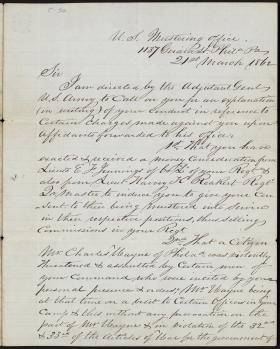 U.S. Mustering Office
1137 Girard St. Phila Pa
21st March, 1862
Sir
I am directed by the Adjutant Genl
U.S. Army, to Call on you for an explanation
(in writing) of your Conduct in reference to
Certain Charges, made against you upon
Affidavits forwarded to his office.
1st That you have
exacted & received a money Consideration from
Lieuts E. J. Jennings of Co of your Regt &
also from Lieut Harry K. Regt
Qr Master to induce you to give your Con
sent to their being mustered into service
in their respective positions, thus selling
Commissions in your Regt
2nd That a Citizen
Mr Charles Wayne of Phila was violently
threatened & assaulted by Certain men of
your Command, who were incited by your
personal presence & orders. Mr Wayne being
at that time on a visit to Certain Officers in your
Camp & this without any provocation on the
part of Mr Wayne & in violation of the 32nd
& 33rd of the Articles of War for the government of